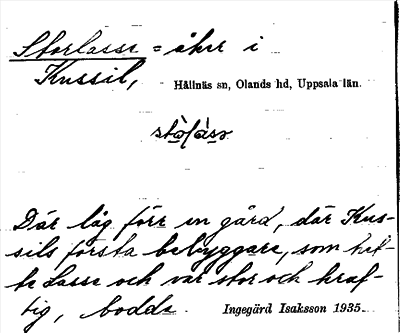 Storlasse = åker i
Kussil, Hållnäs sn, Olands hd, Uppsala län.
Där låg förr en gård, där Kus-
sils första bebyggare, som het-
te Lasse och var stor och kraf-
tig, bodde. Ingegärd Isaksson 1935.